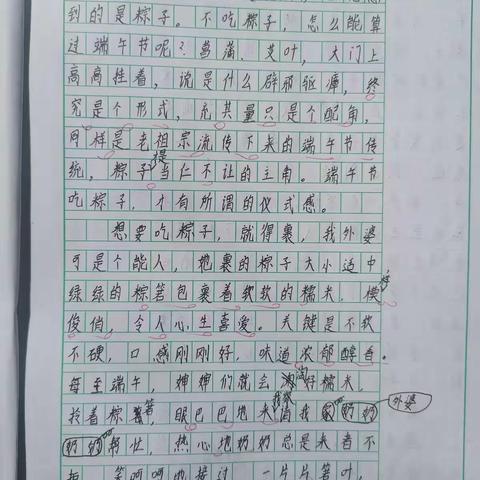 到的是粽子。不吃粽子，怎么能算
过端午节呢？菖蒲、艾叶，大门上
高高挂着，说是什么辟邪驱瘴，终
究是个形式，充其量只是个配角，
同样是老祖宗流传下来的端午节传
统，粽子提当仁不让的主角。端午节
吃粽子，才有所谓的仪式感。
想要吃粽子，就得裹，我外婆
可是个能人，她裹的粽子大小适中
绿绿的粽箬包裹着软软的糯米，模样
俊俏，令人心生喜爱。关键是不软
不硬，口感刚刚好，味道浓郁醇香。
每至端午，婶婶们就会淘好糯米，
拎着粽箬，眼巴巴地来请我奶奶 外婆
奶奶帮忙，热心地奶奶总是来者不
拒，笑呵呵地接过，一片片箬叶，